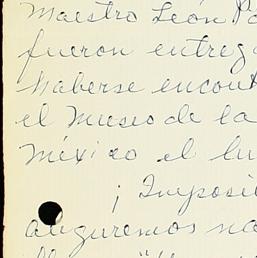 Maestro León Pa
fueron entreg
haberse encont
el Museo de la
México el lu
¡Imposi
auguremos na